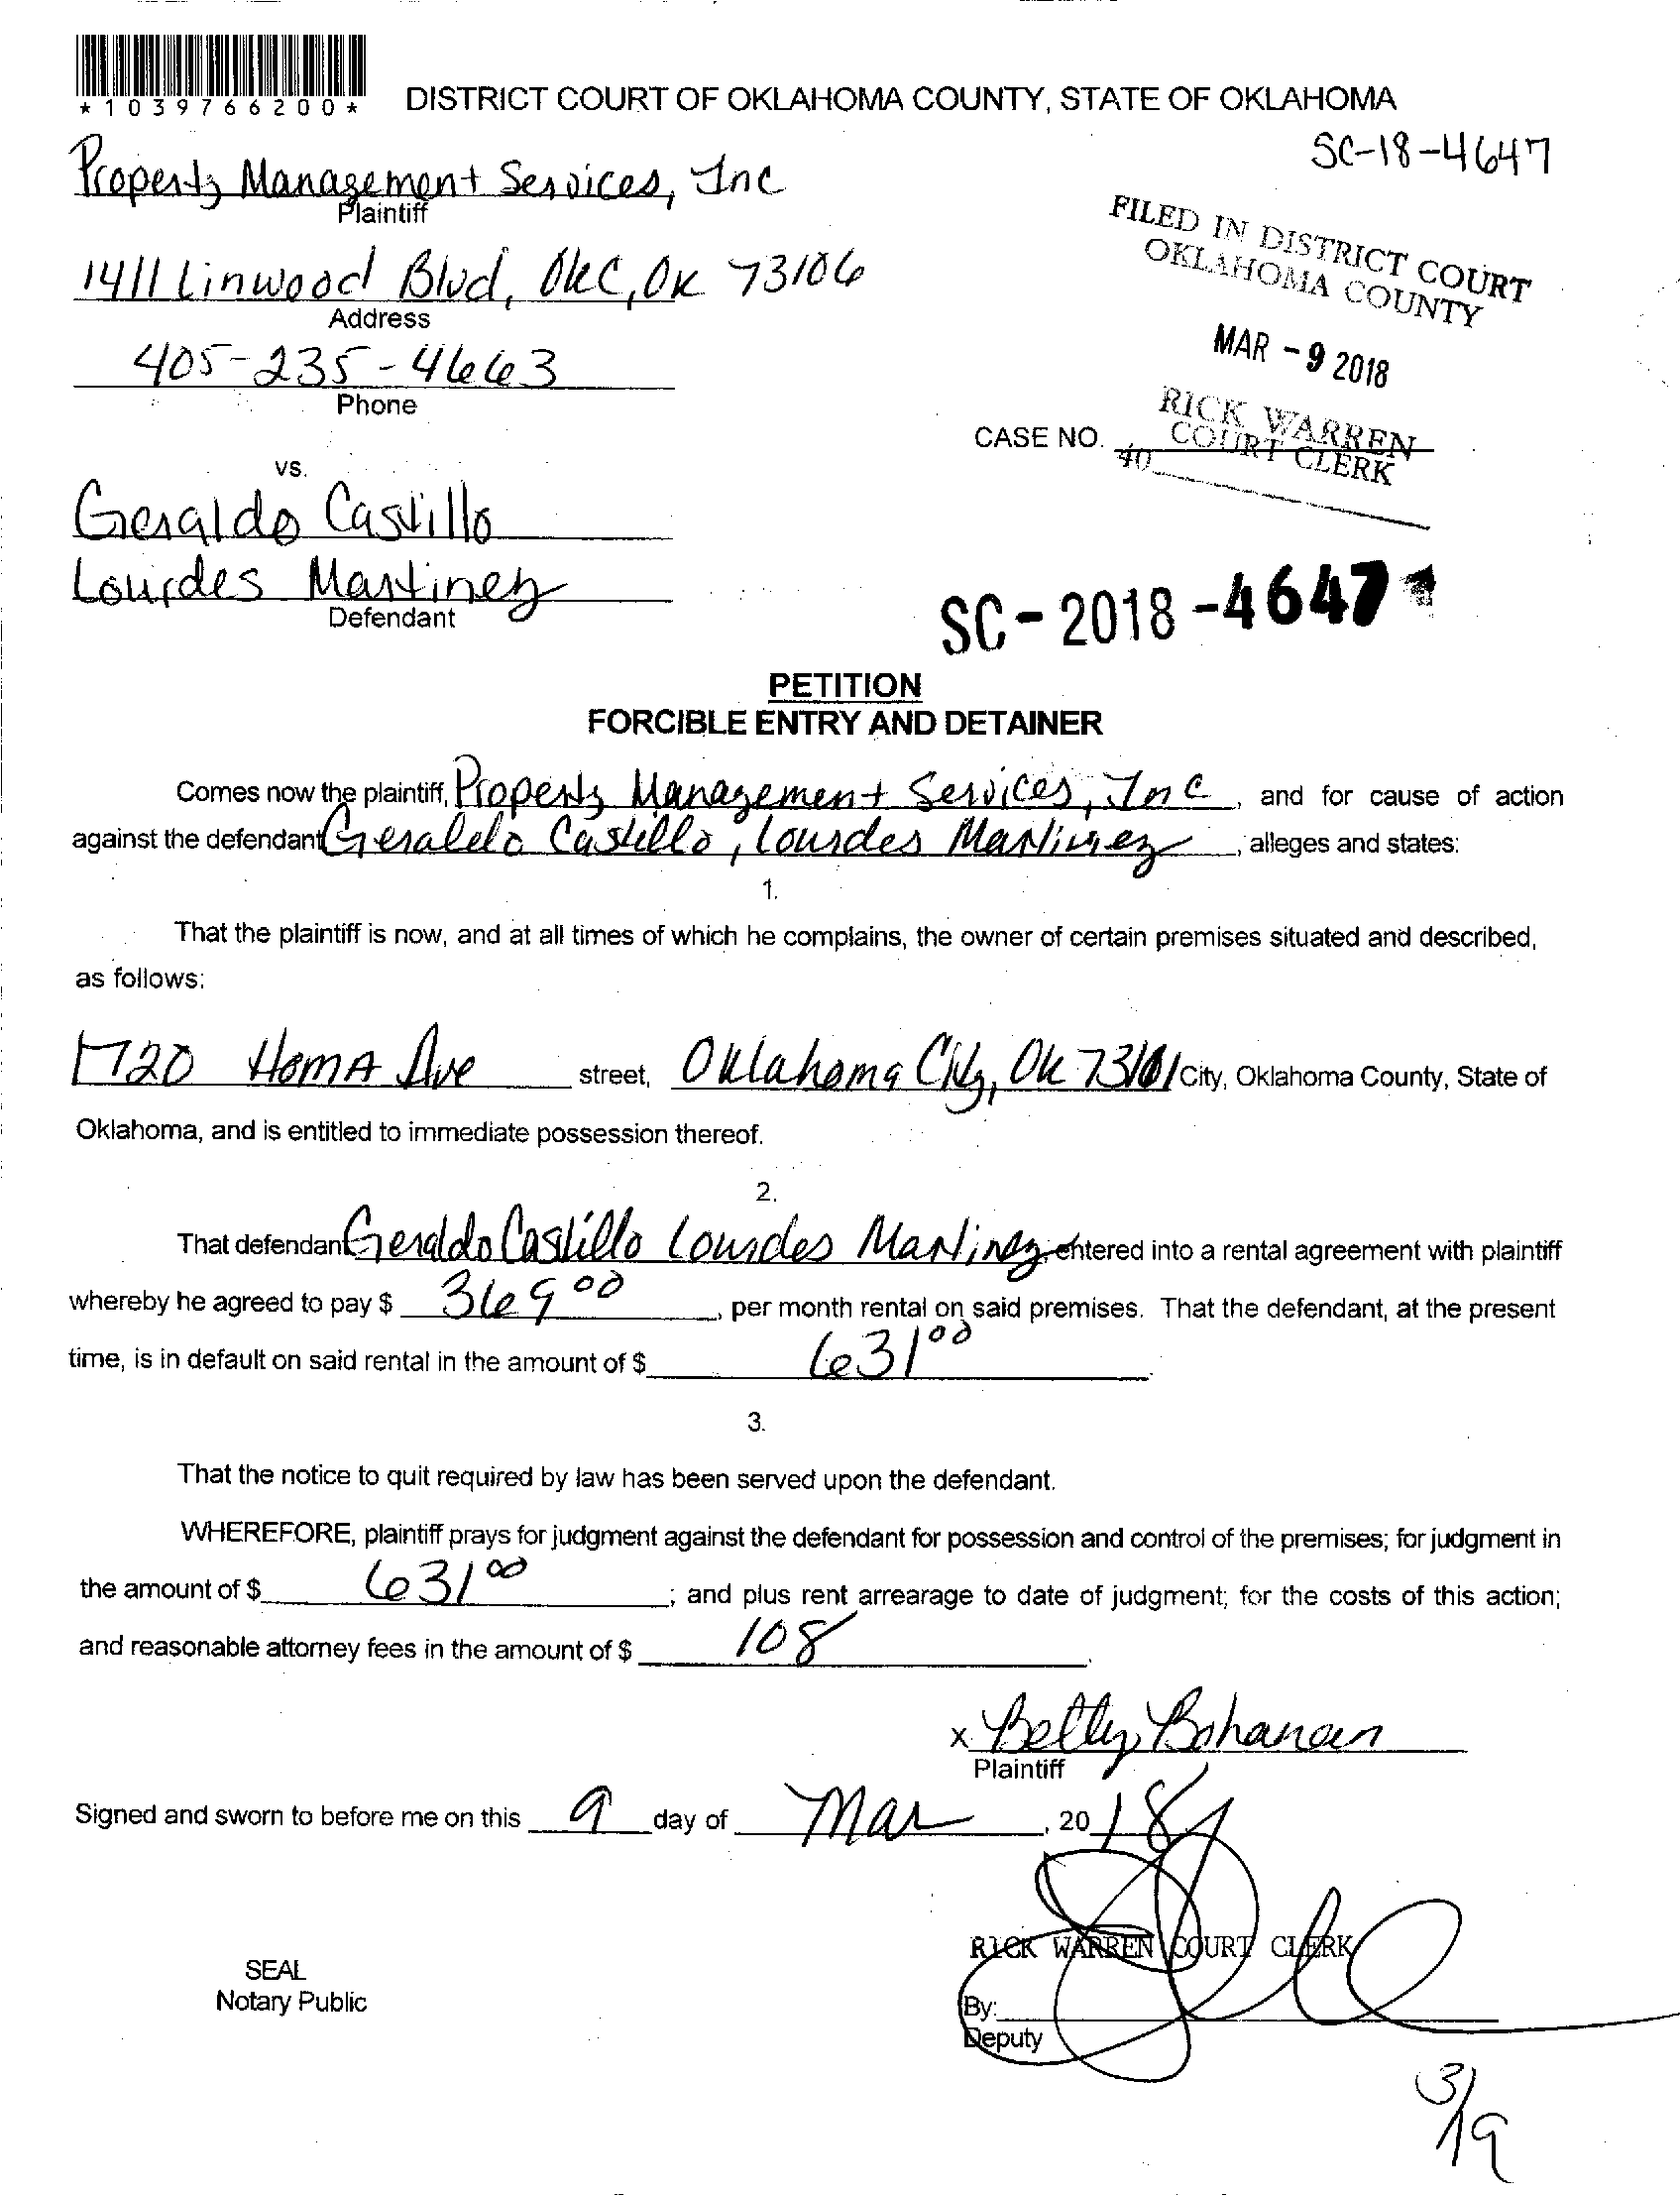 *1039766200*
DISTRICT COURT OF OKLAHOMA COUNTY, STATE OF OKLAHOMA
SC-18-4647
Property Management Services, Inc
Plaintiff
FILED IN DISTRICT COURT
OKLAHOMA COUNTY
1411 Linwood Blvd, OKC, OK 73106
Address
MAR - 9 2018
405-235-4663
Phone
RICK WARREN
COURT CLERK
CASE NO.
40
vs.
Geraldo Castillo
Lourdes Martinez
Defendant
SC - 2018 - 4647
PETITION
FORCIBLE ENTRY AND DETAINER
Comes now the plaintiff, Property Management Services, Inc, and for cause of action
against the defendant Geraldo Castillo, Lourdes Martinez, alleges and states:
1.
That the plaintiff is now, and at all times of which he complains, the owner of certain premises situated and described,
as follows:
1720 Homa Ave street, Oklahoma City, OK City, Oklahoma County, State of
Oklahoma, and is entitled to immediate possession thereof.
2.
That defendant Geraldo Castillo Lourdes Martinez, entered into a rental agreement with plaintiff
whereby he agreed to pay $ 369 00, per month rental on said premises. That the defendant, at the present
time, is in default on said rental in the amount of $ 631 00.
3.
That the notice to quit required by law has been served upon the defendant.
WHEREFORE, plaintiff prays for judgment against the defendant for possession and control of the premises; for judgment in
the amount of $ 631 00; and plus rent arrearage to date of judgment; for the costs of this action;
and reasonable attorney fees in the amount of $ 108.
x Betty Bohanan
Plaintiff
Signed and sworn to before me on this 9 day of Mar, 20 18
RICK WARREN COURT CLERK
SEAL
Notary Public
By:
Deputy
3/19